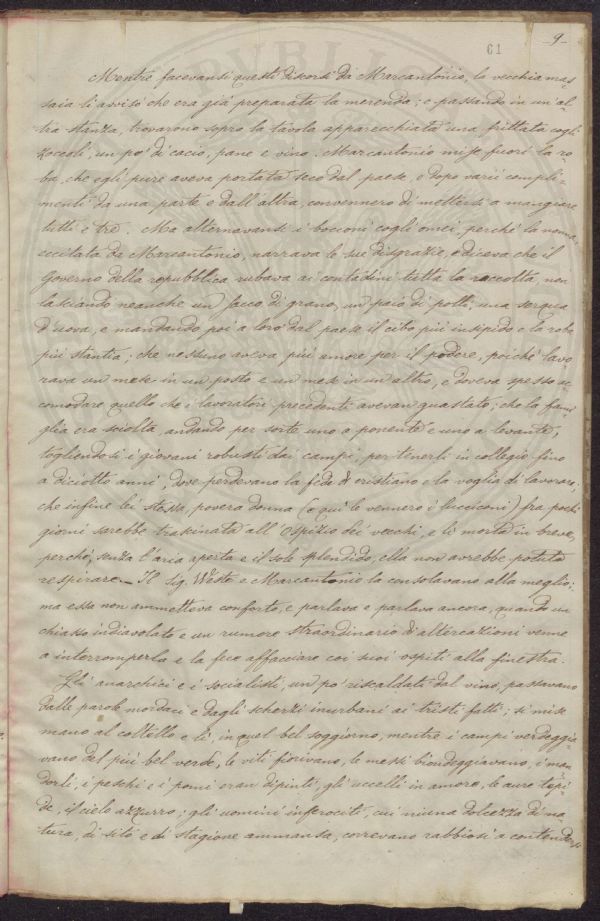 61
-9-
Mentre facevansi questi discorsi da Marcantonio, la vecchia mas-
saia li avvisò che era già preparata la merenda; e passando in un'al-
tra stanza, trovarono sopra la tavola apparecchiata una frittata cogli
zoccoli, un po' di cacio, pane e vino. Marcantonio mise fuori la ro-
ba, che egli pure aveva portata seco dal paese e dopo varii compli-
menti da una parte e dall'altra, convennero di mettersi a mangiare
tutti e tre. Ma alternavansi i bocconi cogli omei, perchè la nonna
eccitata da Marcantonio, narrava le sue disgrazie, e diceva che il
Governo della repubblica rubava ai contadini tutta la raccolta, non
lasciando neanche un sacco di grano, un paio di polli, una serqua
d'uova, e mandando poi a loro dal paese il cibo più insipido e la roba
più stantia; che nessuno aveva più amore per il podere, poichè lavo-
rava un mese in un posto e un mese in un altro, e doveva spesso ac-
comodare quello che i lavoratori precedenti avevan guastato; che la fami-
glia era sciolta, andando per sorte uno a ponente e uno a levante,
togliendosi i giovani robusti dai campi, per tenerli in collegio fino
a diciotto anni, dove perdevano la fede di cristiano e la voglia di lavorare;
che infine lei stessa, povera donna (e qui le vennero i lucciconi) fra pochi
giorni sarebbe trascinata all'Ospizio dei vecchi, e lì morta in breve,
perchè, senza l'aria aperta e il sole splendido, ella non avrebbe potuto
respirare. – Il Sig. Weste e Marcantonio la consolavano alla meglio;
ma essa non ammetteva conforto, e parlava e parlava ancora, quando un
chiasso indiavolato e un rumore straordinario di altercazioni venne
a interromperla e la fece affacciare coi suoi ospiti alla finestra.
Gli anarchici e i socialisti, un po' riscaldati dal vino, passavano
dalle parole mordaci e dagli scherzi inurbani ai tristi fatti; si mise
mano al coltello e lì, in quel bel soggiorno, mentre i campi verdeggia-
vano del più bel verde, le viti fiorivano, le messi biondeggiavano, i man-
dorli, i peschi e i pomi eran dipinti, gli uccelli in amore, le aure tepi-
de, il cielo azzurro; gli uomini inferociti, cui niuna dolcezza di na-
tura, di sito e di stagione ammansa, correvano rabbiosi a contendersi